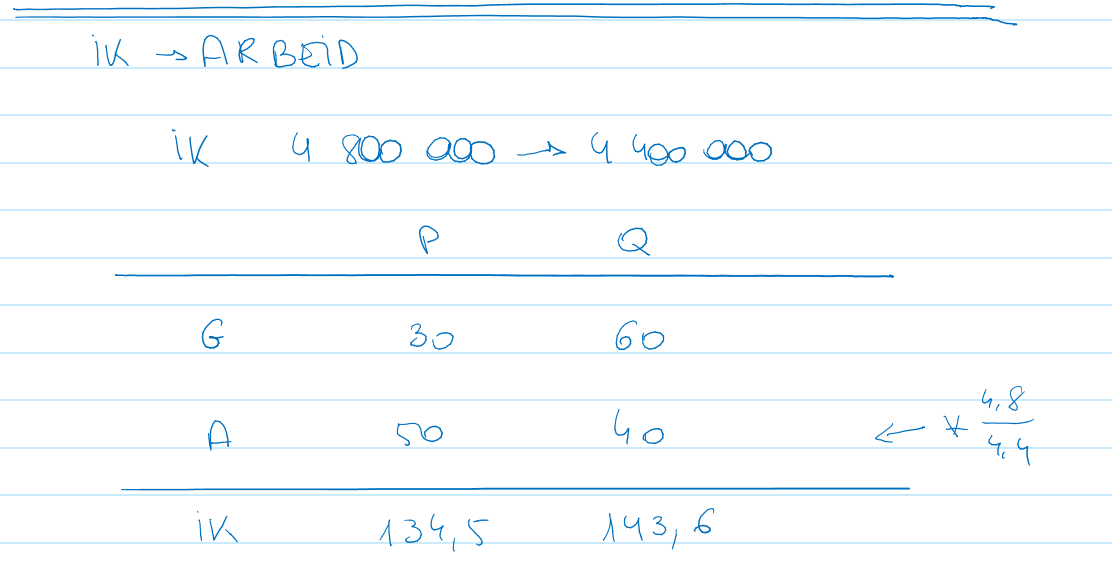 iK → ARBEiD
iK 4 800 000 → 4 400 000
P Q
G 30 60
A 50 40 ← * 4,8/4,4
iK 134,5 143,6